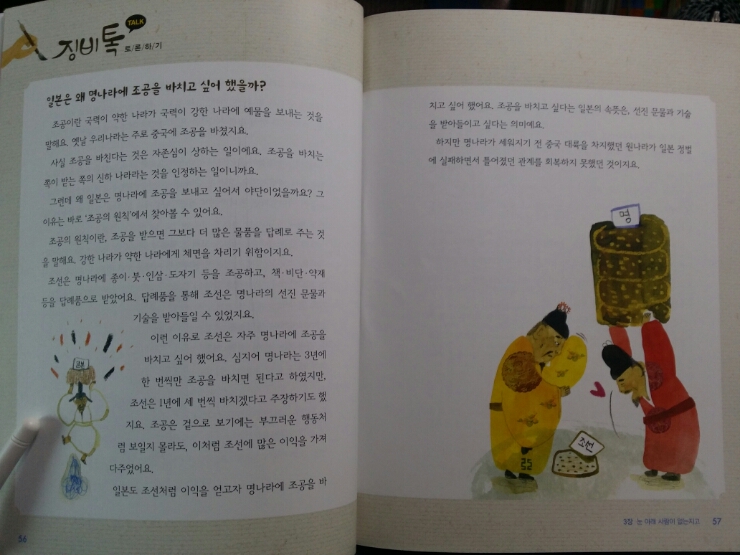 징비톡 TALK
토/론/하/기
일본은 왜 명나라에 조공을 바치고 싶어 했을까?
조공이란 국력이 약한 나라가 국력이 강한 나라에 예물을 보내는 것을
말해요. 옛날 우리나라는 주로 중국에 조공을 바쳤지요.
사실 조공을 바친다는 것은 자존심이 상하는 일이에요. 조공을 바치는
쪽이 받는 쪽의 신하 나라라는 것을 인정하는 일이니까요.
그런데 왜 일본은 명나라에 조공을 보내고 싶어서 야단이었을까요? 그
이유는 바로 '조공의 원칙'에서 찾아볼 수 있어요.
조공의 원칙이란, 조공을 받으면 그보다 더 많은 물품을 답례로 주는 것
을 말해요. 강한 나라가 약한 나라에게 체면을 차리기 위함이지요.
조선은 명나라에 종이·붓·인삼·도자기 등을 조공하고, 책·비단·약재
등을 답례품으로 받았어요. 답례품을 통해 조선은 명나라의 선진 문물과
기술을 받아들일 수 있었지요.
이런 이유로 조선은 자주 명나라에 조공을
바치고 싶어 했어요. 심지어 명나라는 3년에
한 번씩만 조공을 바치면 된다고 하였지만,
조선은 1년에 세 번씩 바치겠다고 주장하기도 했
지요. 조공은 겉으로 보기에는 부끄러운 행동처
럼 보일지 몰라도, 이처럼 조선에 많은 이익을 가져
다주었어요.
일본도 조선처럼 이익을 얻고자 명나라에 조공을 바
56
치고 싶어 했어요. 조공을 바치고 싶다는 일본의 속뜻은, 선진 문물과 기술
을 받아들이고 싶다는 의미예요.
하지만 명나라가 세워지기 전 중국 대륙을 차지했던 원나라가 일본 정벌
에 실패하면서 틀어졌던 관계를 회복하지 못했던 것이지요.
명
조선
3장 눈 아래 사람이 없는지고 57